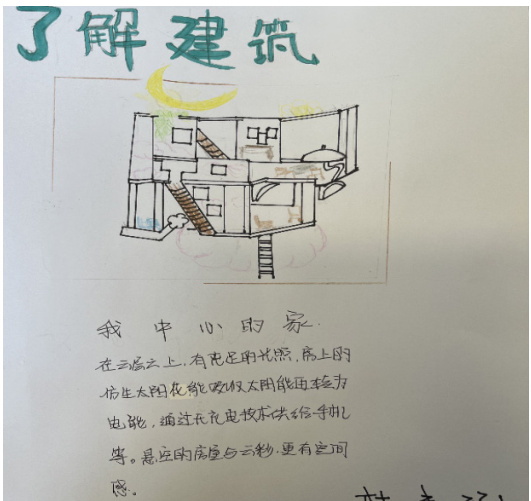 了解建筑
我中心的家.
在云层之上,有充足的光照,房上的
仿生太阳花能吸收太阳能再转为
电能,通过无线充电技术供给手机
等。悬空的房屋与云朵.更有空间
感。